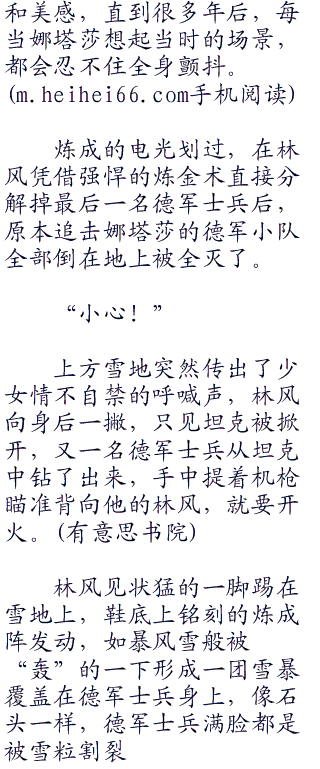 和美感，直到很多年后，每
当娜塔莎想起当时的场景，
都会忍不住全身颤抖。
(m.heihei66.com手机阅读)
炼成的电光划过，在林
风凭借强悍的炼金术直接分
解掉最后一名德军士兵后，
原本追击娜塔莎的德军小队
全部倒在地上被全灭了。
“小心！”
上方雪地突然传出了少
女情不自禁的呼喊声，林风
向身后一撇，只见坦克被掀
开，又一名德军士兵从坦克
中钻了出来，手中提着机枪
瞄准背向他的林风，就要开
火。(有意思书院)
林风见状猛的一脚踢在
雪地上，鞋底上铭刻的炼成
阵发动，如暴风雪般被
“轰”的一下形成一团雪暴
覆盖在德军士兵身上，像石
头一样，德军士兵满脸都是
被雪粒割裂